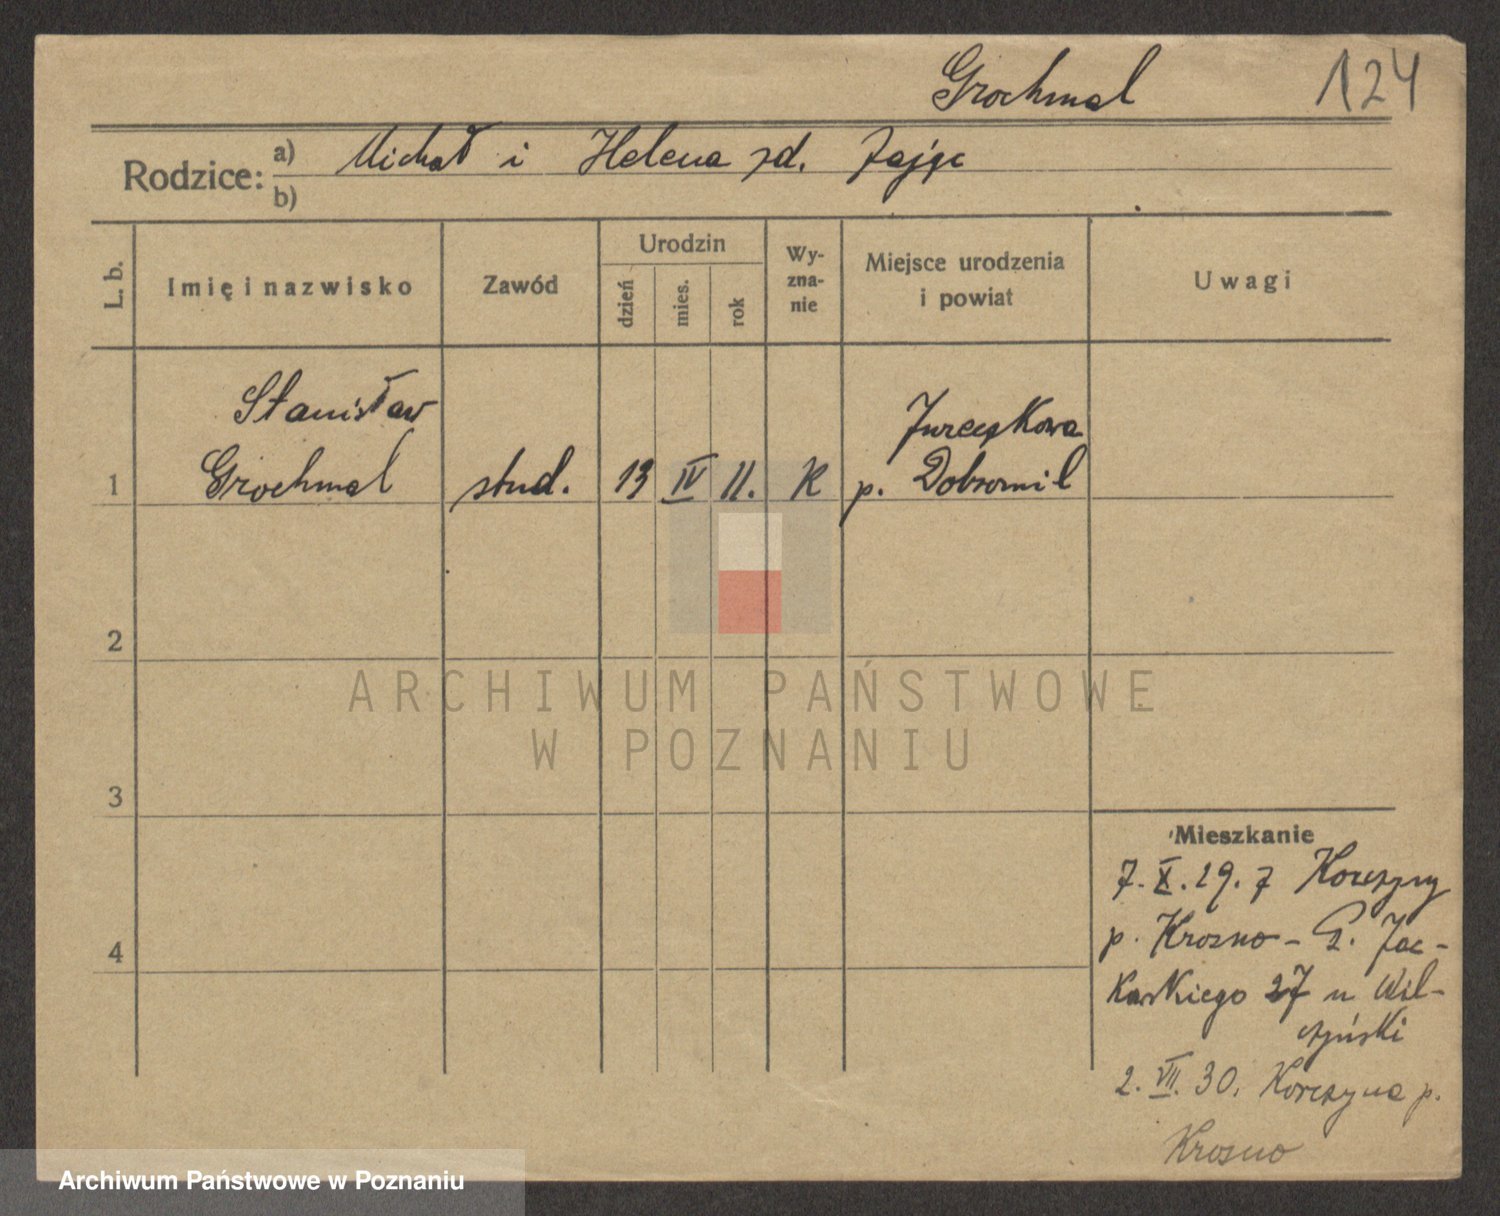 Grochmal 124
Rodzice: a) Michał i Helena zd. Zając
b)
L. b. Imię i nazwisko Zawód Urodzin dzień mies. rok Wy-zna-nie Miejsce urodzenia i powiat Uwagi
Stanisław Jureczkowa
1 Grochmal stud. 13 IV 11. K p. Dobromil
2
3
4
Mieszkanie
7. X. 29. z Korczyny
p. Krosno - G. Jac-
kowskiego 27 u Wil-
czyński
2. VII. 30. Korczyna p.
Krosno
ARCHIWUM PAŃSTWOWE
W POZNANIU
Archiwum Państwowe w Poznaniu